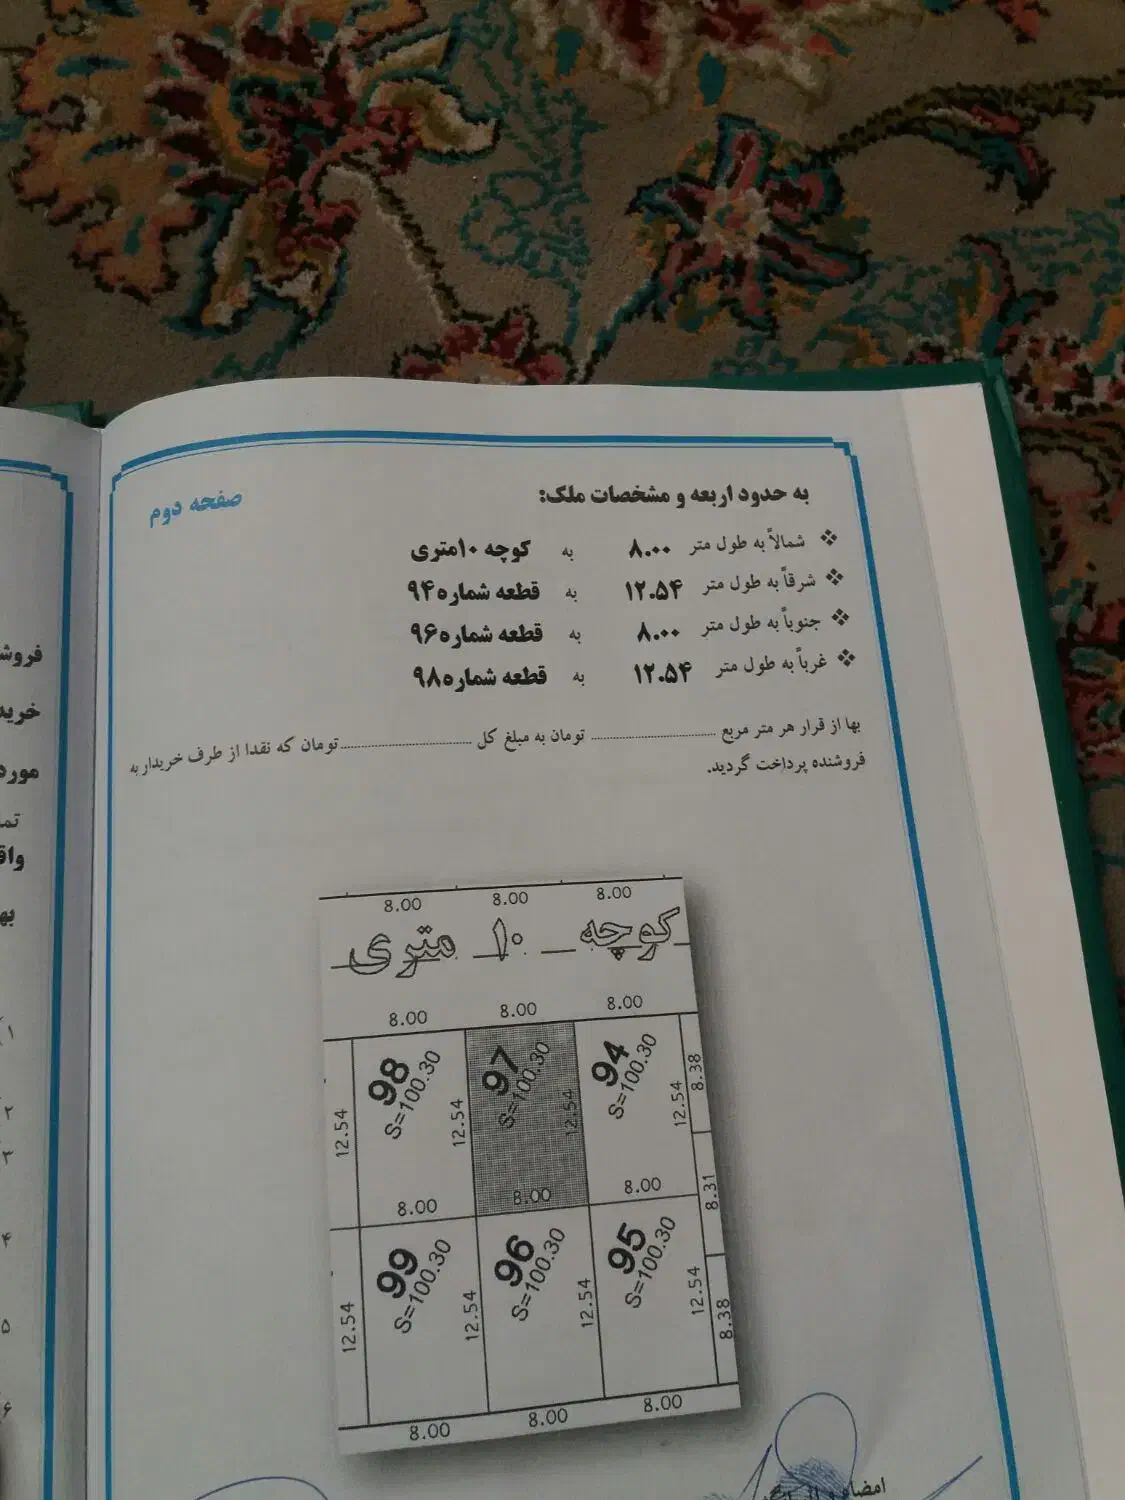 صفحه دوم
به حدود اربعه و مشخصات ملک:
❖ شمالاً به طول متر ۸.۰۰ به کوچه ۱۰متری
❖ شرقاً به طول متر ۱۲.۵۴ به قطعه شماره ۹۴
❖ جنوباً به طول متر ۸.۰۰ به قطعه شماره ۹۶
❖ غرباً به طول متر ۱۲.۵۴ به قطعه شماره ۹۸
بها از قرار هر متر مربع .................... تومان به مبلغ کل .................... تومان که نقدا از طرف خریدار به
فروشنده پرداخت گردید.
8.00 8.00 8.00
کوچه ۱۰ متری
8.00 8.00 8.00
98 97 94
S=100.30 S=100.30 S=100.30
12.54 12.54 12.54 12.54 8.38
8.00 8.00 8.00
8.31
99 96 95
S=100.30 S=100.30 S=100.30
12.54 12.54 12.54 12.54 8.38
8.00 8.00 8.00
فروش
خرید
مورد
تم
واق
به
۱
۲
۳
۴
۵
۶